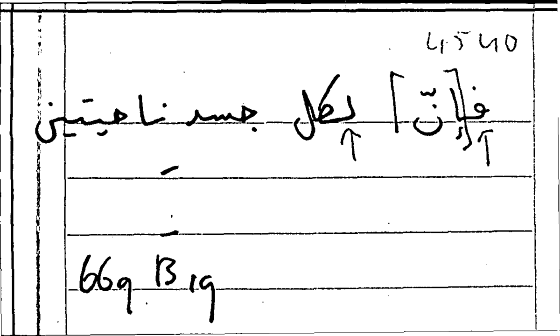 4540
فـ[ـإنّ] لكل جسد ناحيتين
669 B 19